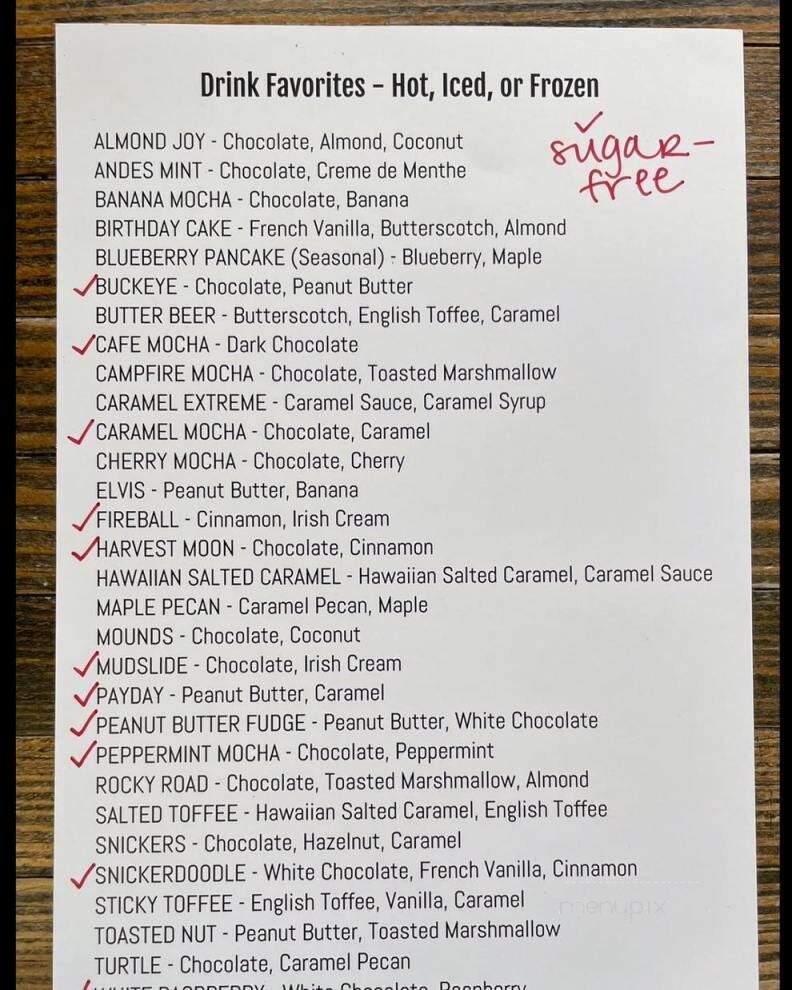 Drink Favorites - Hot, Iced, or Frozen
✓
sugar-
free
ALMOND JOY - Chocolate, Almond, Coconut
ANDES MINT - Chocolate, Creme de Menthe
BANANA MOCHA - Chocolate, Banana
BIRTHDAY CAKE - French Vanilla, Butterscotch, Almond
BLUEBERRY PANCAKE (Seasonal) - Blueberry, Maple
✓BUCKEYE - Chocolate, Peanut Butter
BUTTER BEER - Butterscotch, English Toffee, Caramel
✓CAFE MOCHA - Dark Chocolate
CAMPFIRE MOCHA - Chocolate, Toasted Marshmallow
CARAMEL EXTREME - Caramel Sauce, Caramel Syrup
✓CARAMEL MOCHA - Chocolate, Caramel
CHERRY MOCHA - Chocolate, Cherry
ELVIS - Peanut Butter, Banana
✓FIREBALL - Cinnamon, Irish Cream
✓HARVEST MOON - Chocolate, Cinnamon
HAWAIIAN SALTED CARAMEL - Hawaiian Salted Caramel, Caramel Sauce
MAPLE PECAN - Caramel Pecan, Maple
MOUNDS - Chocolate, Coconut
✓MUDSLIDE - Chocolate, Irish Cream
✓PAYDAY - Peanut Butter, Caramel
✓PEANUT BUTTER FUDGE - Peanut Butter, White Chocolate
✓PEPPERMINT MOCHA - Chocolate, Peppermint
ROCKY ROAD - Chocolate, Toasted Marshmallow, Almond
SALTED TOFFEE - Hawaiian Salted Caramel, English Toffee
SNICKERS - Chocolate, Hazelnut, Caramel
✓SNICKERDOODLE - White Chocolate, French Vanilla, Cinnamon
STICKY TOFFEE - English Toffee, Vanilla, Caramel
menupix
TOASTED NUT - Peanut Butter, Toasted Marshmallow
TURTLE - Chocolate, Caramel Pecan
✓WHITE RASPBERRY - White Chocolate, Raspberry